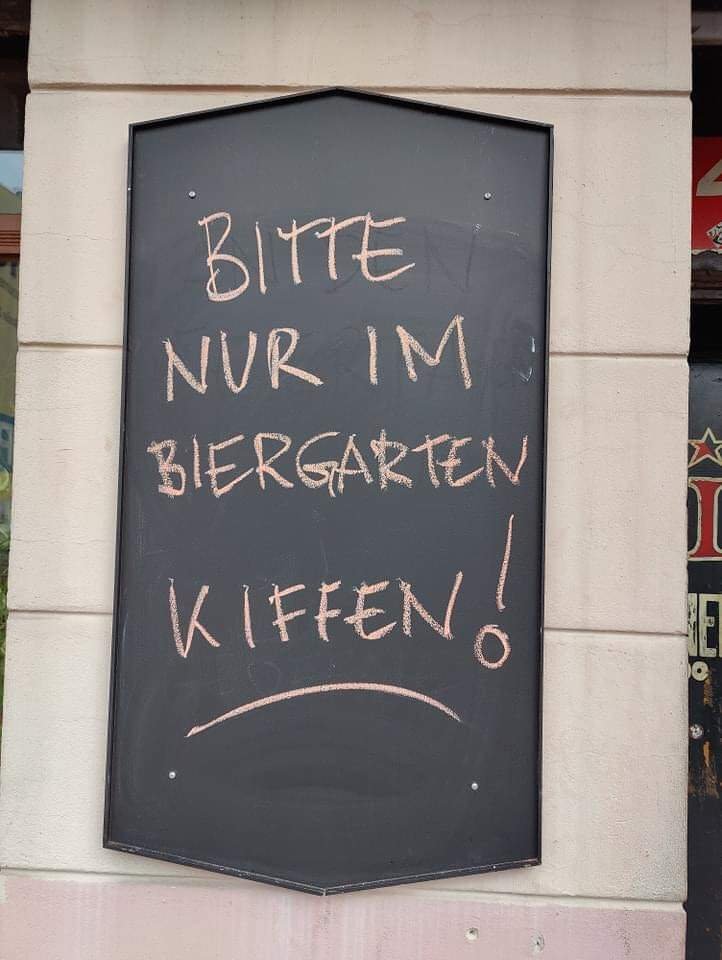 BITTE
NUR IM
BIERGARTEN
KIFFEN!